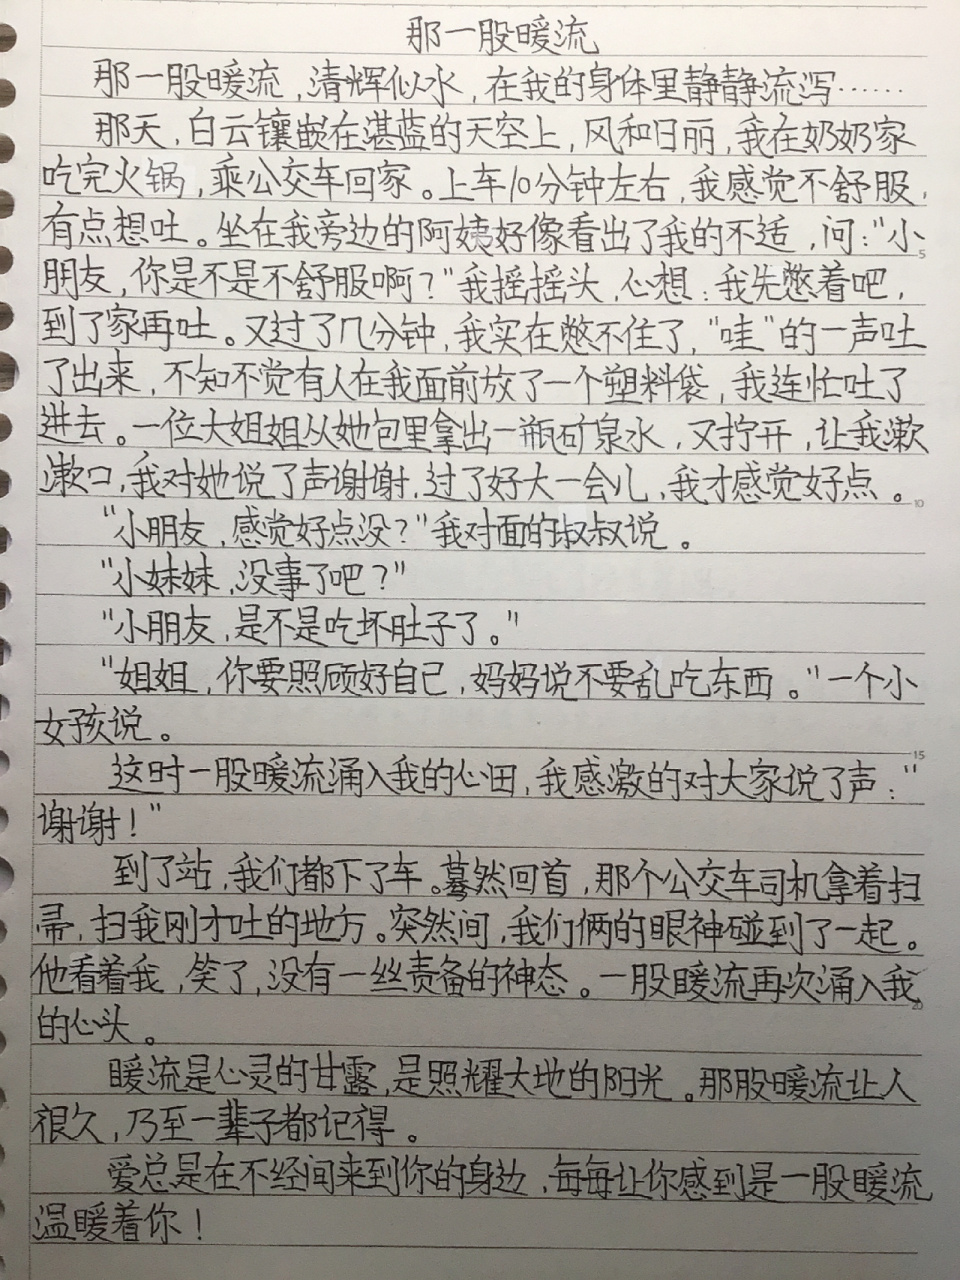 那一股暖流
那一股暖流，清辉似水，在我的身体里静静流泻……
那天，白云镶嵌在湛蓝的天空上，风和日丽，我在奶奶家
吃完火锅，乘公交车回家。上车10分钟左右，我感觉不舒服，
有点想吐。坐在我旁边的阿姨好像看出了我的不适，问："小
5
朋友，你是不是不舒服啊？"我摇摇头，心想：我先憋着吧，
到了家再吐。又过了几分钟，我实在憋不住了，"哇"的一声吐
了出来，不知不觉有人在我面前放了一个塑料袋，我连忙吐了
进去。一位大姐姐从她包里拿出一瓶矿泉水，又拧开，让我漱
漱口，我对她说了声谢谢，过了好大一会儿，我才感觉好点。
10
"小朋友，感觉好点没？"我对面的叔叔说。
"小妹妹，没事了吧？"
"小朋友，是不是吃坏肚子了。"
"姐姐，你要照顾好自己，妈妈说不要乱吃东西。"一个小
女孩说。
15
这时一股暖流涌入我的心田，我感激的对大家说了声："
谢谢！"
到了站，我们都下了车。蓦然回首，那个公交车司机拿着扫
帚，扫我刚才吐的地方。突然间，我们俩的眼神碰到了一起。
他看着我，笑了，没有一丝责备的神态。一股暖流再次涌入我
20
的心头。
暖流是心灵的甘露，是照耀大地的阳光。那股暖流让人
很久，乃至一辈子都记得。
爱总是在不经间来到你的身边，每每让你感到是一股暖流
温暖着你！